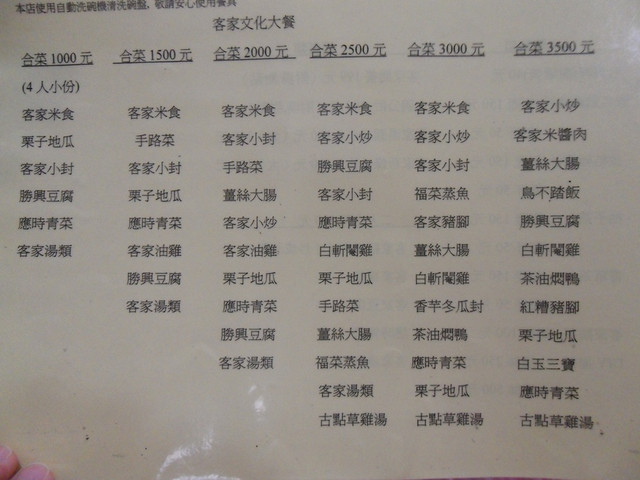 本店使用自動洗碗機清洗碗盤, 敬請安心使用餐具
客家文化大餐
合菜 1000 元 合菜 1500 元 合菜 2000 元 合菜 2500 元 合菜 3000 元 合菜 3500 元
(4 人小份)
客家米食 客家米食 客家米食 客家米食 客家米食 客家小炒
栗子地瓜 手路菜 客家小封 客家小炒 客家小炒 客家米醬肉
客家小封 客家小封 手路菜 勝興豆腐 客家小封 薑絲大腸
勝興豆腐 栗子地瓜 薑絲大腸 客家小封 福菜蒸魚 鳥不踏飯
應時青菜 應時青菜 客家小炒 應時青菜 客家豬腳 勝興豆腐
客家湯類 客家油雞 客家油雞 白斬閹雞 薑絲大腸 白斬閹雞
勝興豆腐 栗子地瓜 栗子地瓜 白斬閹雞 茶油燜鴨
客家湯類 應時青菜 手路菜 香芋冬瓜封 紅糟豬腳
勝興豆腐 薑絲大腸 茶油燜鴨 栗子地瓜
客家湯類 福菜蒸魚 應時青菜 白玉三寶
客家湯類 栗子地瓜 應時青菜
古點草雞湯 古點草雞湯 古點草雞湯